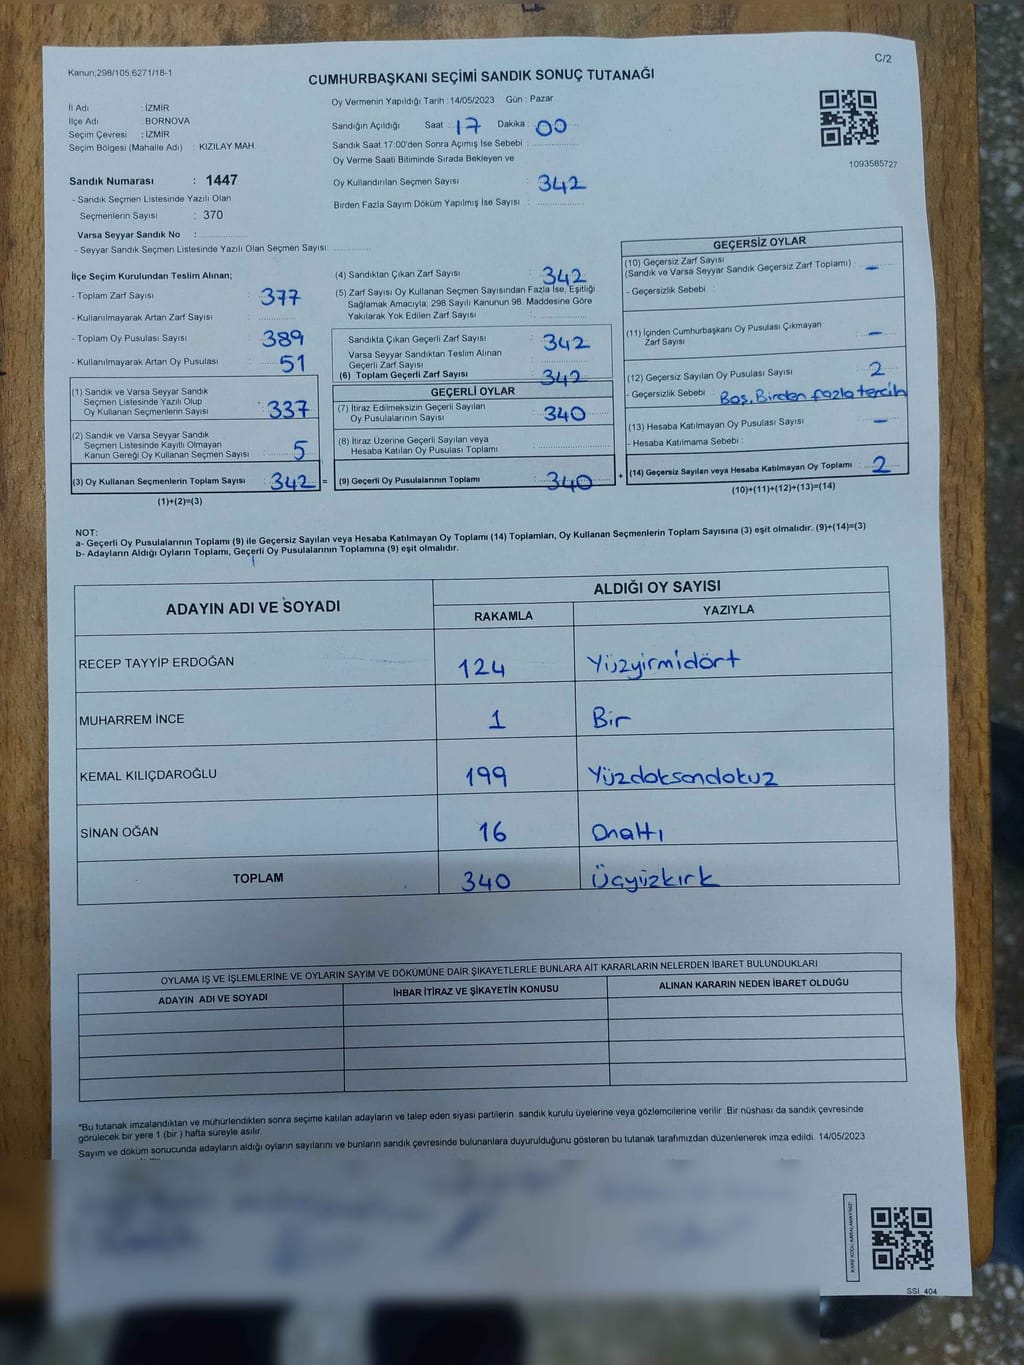 Kanun;298/105;6271/18-1
C/2
CUMHURBAŞKANI SEÇİMİ SANDIK SONUÇ TUTANAĞI
İl Adı : İZMİR
İlçe Adı : BORNOVA
Seçim Çevresi : İZMİR
Seçim Bölgesi (Mahalle Adı) : KIZILAY MAH.
Oy Vermenin Yapıldığı Tarih : 14/05/2023 Gün : Pazar
Sandığın Açıldığı Saat : 17 Dakika : 00
Sandık Saat 17:00'den Sonra Açımış İse Sebebi :
Oy Verme Saati Bitiminde Sırada Bekleyen ve
Oy Kullandırılan Seçmen Sayısı : 342
Birden Fazla Sayım Döküm Yapılmış İse Sayısı :
1093585727
Sandık Numarası : 1447
- Sandık Seçmen Listesinde Yazılı Olan
Seçmenlerin Sayısı : 370
Varsa Seyyar Sandık No :
- Seyyar Sandık Seçmen Listesinde Yazılı Olan Seçmen Sayısı:
İlçe Seçim Kurulundan Teslim Alınan;
- Toplam Zarf Sayısı : 377
- Kullanılmayarak Artan Zarf Sayısı :
- Toplam Oy Pusulası Sayısı : 389
- Kullanılmayarak Artan Oy Pusulası : 51
(1) Sandık ve Varsa Seyyar Sandık
Seçmen Listesinde Yazılı Olup
Oy Kullanan Seçmenlerin Sayısı : 337
(2) Sandık ve Varsa Seyyar Sandık
Seçmen Listesinde Kayıtlı Olmayan
Kanun Gereği Oy Kullanan Seçmen Sayısı : 5
(3) Oy Kullanan Seçmenlerin Toplam Sayısı : 342 =
(1)+(2)=(3)
(4) Sandıktan Çıkan Zarf Sayısı : 342
(5) Zarf Sayısı Oy Kullanan Seçmen Sayısından Fazla İse, Eşitliği
Sağlamak Amacıyla, 298 Sayılı Kanunun 98. Maddesine Göre
Yakılarak Yok Edilen Zarf Sayısı :
Sandıkta Çıkan Geçerli Zarf Sayısı : 342
Varsa Seyyar Sandıktan Teslim Alınan
Geçerli Zarf Sayısı :
(6) Toplam Geçerli Zarf Sayısı : 342
GEÇERLİ OYLAR
(7) İtiraz Edilmeksizin Geçerli Sayılan
Oy Pusulasının Sayısı : 340
(8) İtiraz Üzerine Geçerli Sayılan veya
Hesaba Katılan Oy Pusulası Toplamı :
(9) Geçerli Oy Pusulalarının Toplamı : 340 +
GEÇERSİZ OYLAR
(10) Geçersiz Zarf Sayısı
(Sandık ve Varsa Seyyar Sandık Geçersiz Zarf Toplamı) : -
- Geçersizlik Sebebi :
(11) İçinden Cumhurbaşkanı Oy Pusulası Çıkmayan
Zarf Sayısı : -
(12) Geçersiz Sayılan Oy Pusulası Sayısı : 2
- Geçersizlik Sebebi : Boş, Birden fazla tercih
(13) Hesaba Katılmayan Oy Pusulası Sayısı : -
- Hesaba Katılmama Sebebi :
(14) Geçersiz Sayılan veya Hesaba Katılmayan Oy Toplamı : 2
(10)+(11)+(12)+(13)=(14)
NOT:
a- Geçerli Oy Pusulalarının Toplamı (9) ile Geçersiz Sayılan veya Hesaba Katılmayan Oy Toplamı (14) Toplamları, Oy Kullanan Seçmenlerin Toplam Sayısına (3) eşit olmalıdır. (9)+(14)=(3)
b- Adayların Aldığı Oyların Toplamı, Geçerli Oy Pusulalarının Toplamına (9) eşit olmalıdır.
ADAYIN ADI VE SOYADI
ALDIĞI OY SAYISI
RAKAMLA YAZIYLA
RECEP TAYYİP ERDOĞAN 124 Yüzyirmidört
MUHARREM İNCE 1 Bir
KEMAL KILIÇDAROĞLU 199 Yüzdoksandokuz
SİNAN OĞAN 16 Onaltı
TOPLAM 340 Üçyüzkırk
OYLAMA İŞ VE İŞLEMLERİNE VE OYLARIN SAYIM VE DÖKÜMÜNE DAİR ŞİKAYETLERLE BUNLARA AİT KARARLARIN NELERDEN İBARET BULUNDUKLARI
ADAYIN ADI VE SOYADI İHBAR İTİRAZ VE ŞİKAYETİN KONUSU ALINAN KARARIN NEDEN İBARET OLDUĞU
*Bu tutanak imzalandıktan ve mühürlendikten sonra seçime katılan adayların ve talep eden siyasi partilerin sandık kurulu üyelerine veya gözlemcilerine verilir .Bir nüshası da sandık çevresinde
görülecek bir yere 1 (bir ) hafta süreyle asılır.
Sayım ve döküm sonucunda adayların aldığı oyların sayılarını ve bunların sandık çevresinde bulunanlara duyurulduğunu gösteren bu tutanak tarafımızdan düzenlenerek imza edildi. 14/05/2023
KARE KODU KARALAMAYINIZ!
SSI 404